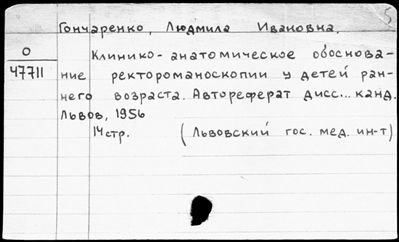 5
Гончаренко, Людмила Ивановна.
О
47711
Клинико-анатомическое обоснова-
ние ректороманоскопии у детей ран-
него возраста. Автореферат дисс... канд.
Львов, 1956
14 стр. (Львовский гос. мед. ин-т)